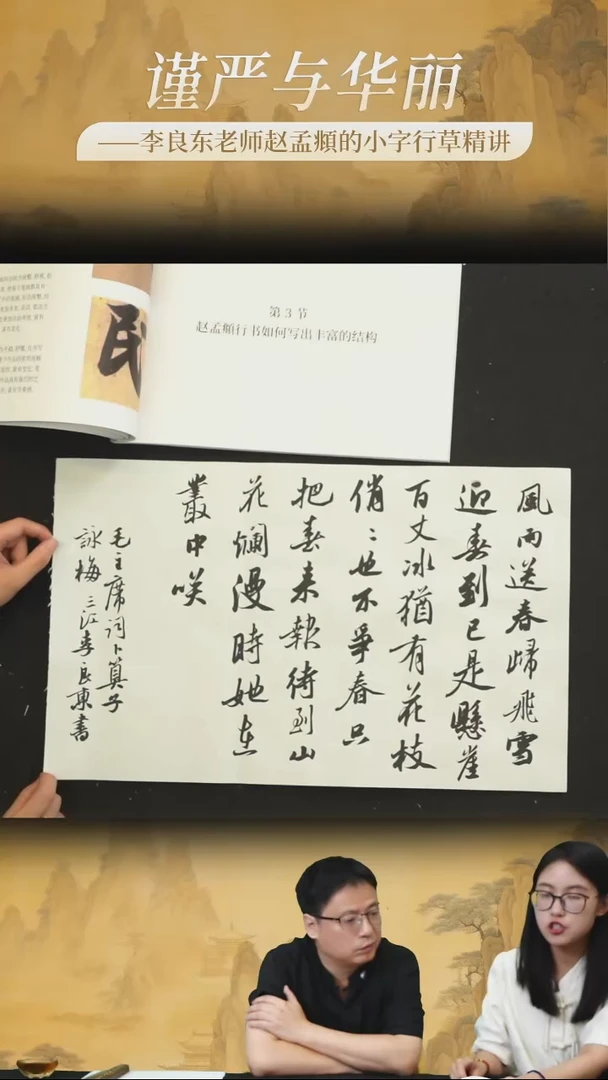 谨严与华丽
——李良东老师赵孟頫的小字行草精讲
民
第3节
赵孟頫行书如何写出丰富的结构
風雨送春歸飛雪
迎春到已是懸崖
百丈冰猶有花枝
俏〻也不爭春只
把春来報待到山
花爛漫時她在
叢中咲
毛主席词卜算子
詠梅 三江李良東書